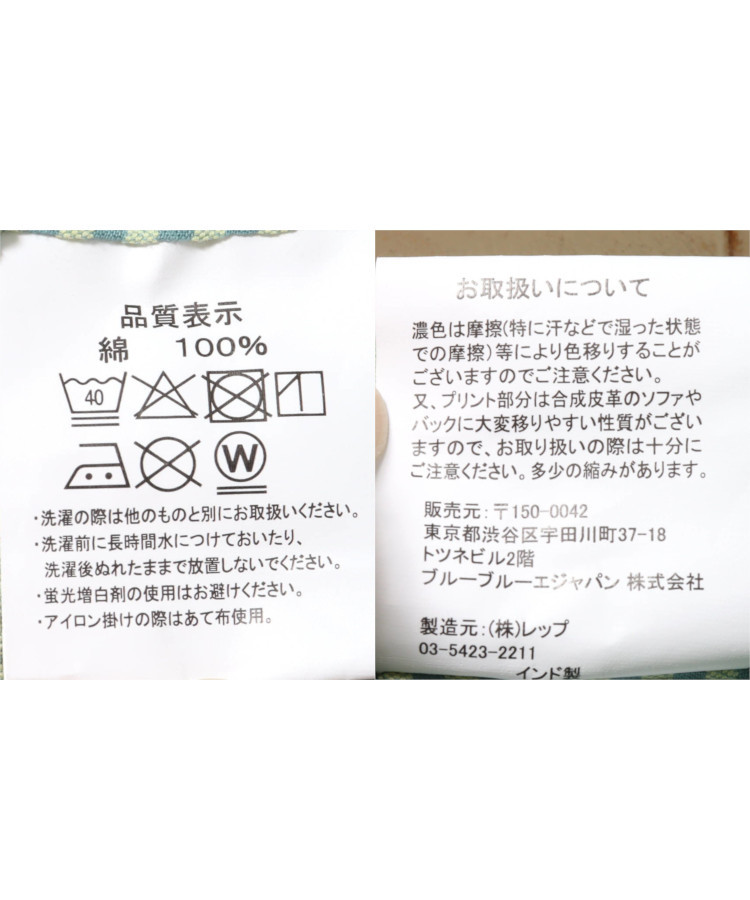 品質表示
綿 100%
40
W
・洗濯の際は他のものと別にお取扱いください。
・洗濯前に長時間水につけておいたり、
洗濯後ぬれたままで放置しないでください。
・蛍光増白剤の使用はお避けください。
・アイロン掛けの際はあて布使用。
お取扱いについて
濃色は摩擦(特に汗などで湿った状態
での摩擦)等により色移りすることが
ございますのでご注意ください。
又、プリント部分は合成皮革のソファや
バックに大変移りやすい性質がござい
ますので、お取り扱いの際は十分に
ご注意ください。多少の縮みがあります。
販売元:〒150-0042
東京都渋谷区宇田川町37-18
トツネビル2階
ブルーブルーエジャパン 株式会社
製造元:(株)レップ
03-5423-2211
インド製